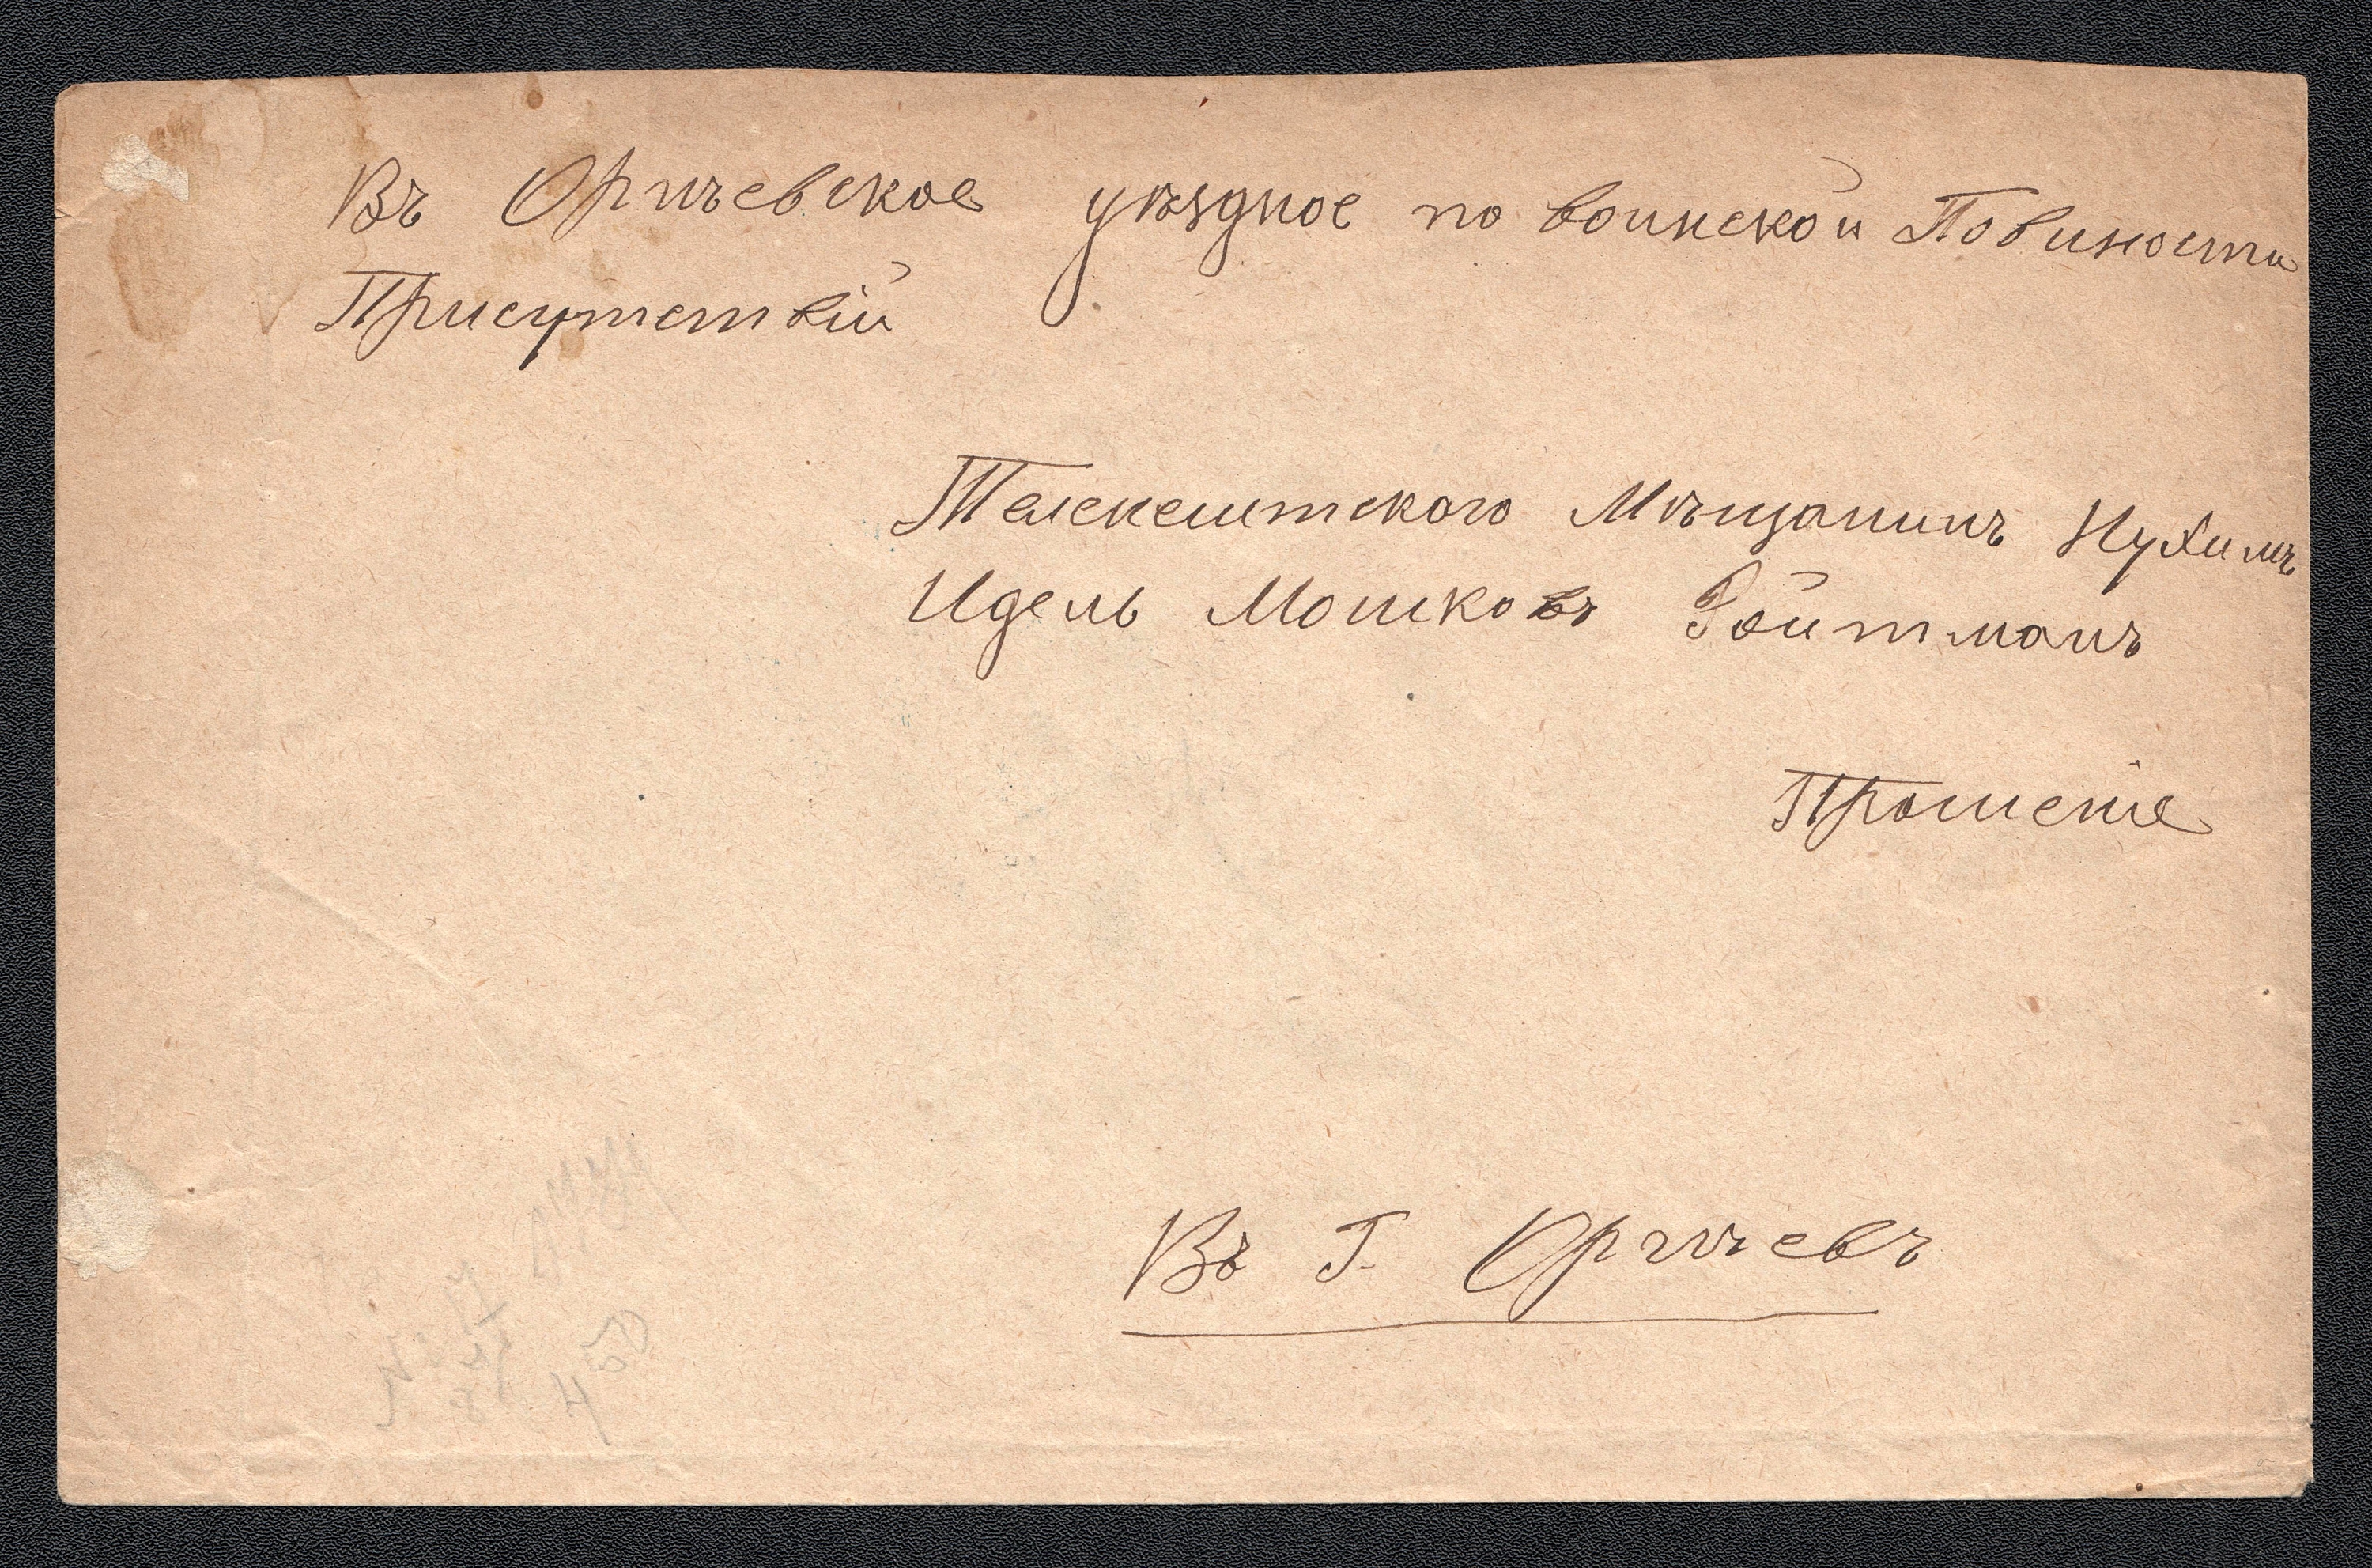 Въ Оргѣевское уѣздное по воинской Повиности
Присутствій
Телекештского Мѣщанинъ Нухимъ
Идель Мошковъ Ройтманъ
Прошеніе
Въ Г. Оргѣевъ